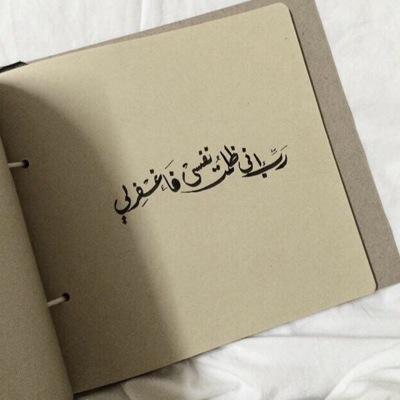 رَبِّ إني ظلمت نفسي فَاغْفِرلي